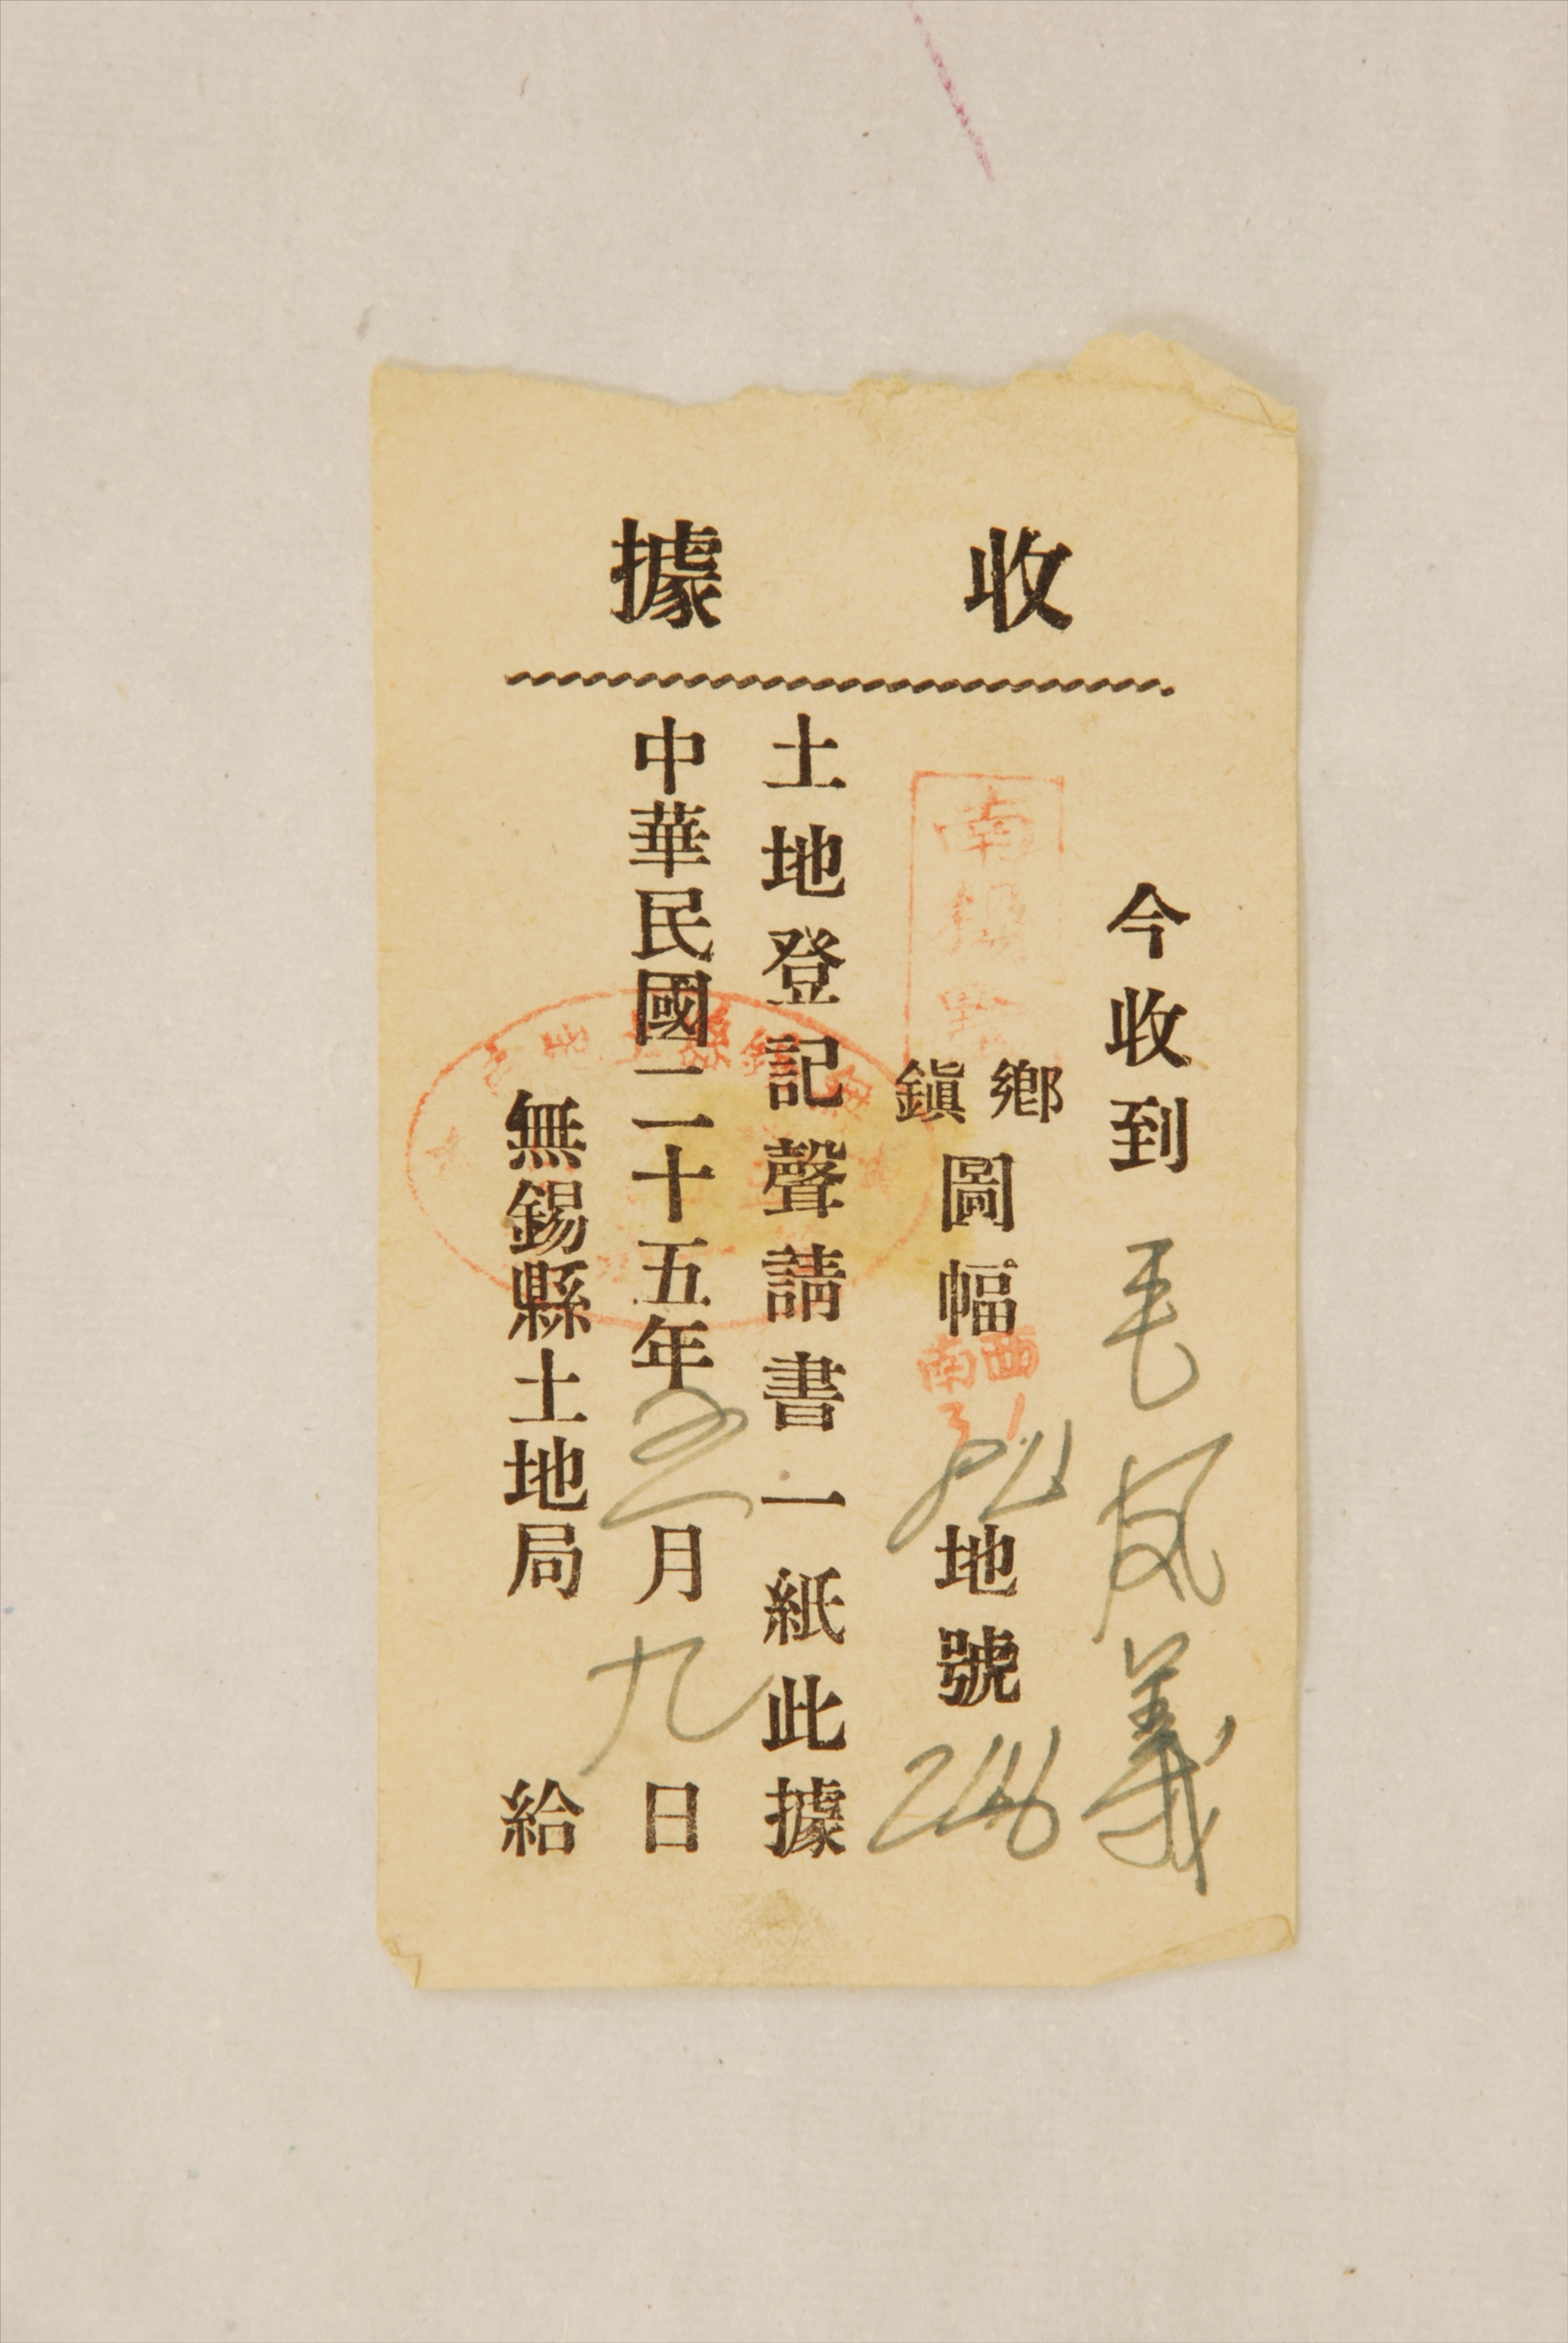 收據
今收到 毛凤義
鄉鎮圖幅 地號
土地登記聲請書一紙此據
中華民國二十五年 月九日
無錫縣土地局 給
南
西
南